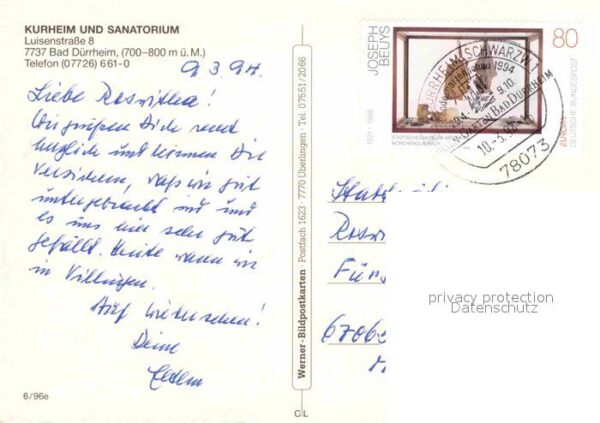 KURHEIM UND SANATORIUM
Luisenstraße 8
7737 Bad Dürrheim, (700-800 m ü. M.)
Telefon (07726) 661-0
9.3.94.
Liebe Roswitha!
Wir grüßen Dich recht
herzlich und können Dir
versichern, daß wir gut
untergebracht sind und
es uns hier sehr gut
gefällt. Heute waren wir
in Villingen.
Auf Wiedersehen!
Deine
Eltern
6/96e
Werner-Bildpostkarten · Postfach 1623 · 7770 Überlingen · Tel. 07551/2066
C/L
JOSEPH
BEUYS
1921-1986
80
DEUTSCHE BUNDESPOST
EUROPA
MÖNCHENGLADBACH
1994
9.10.
BAD DÜRRHEIM
10.-3.
78073
Rosw
Für
6706
privacy protection
Datenschutz